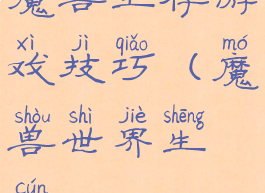 魔兽生存游
xì jì qiǎo mó
戏技巧(魔
shòu shì jiè shēng
兽世界生
cún